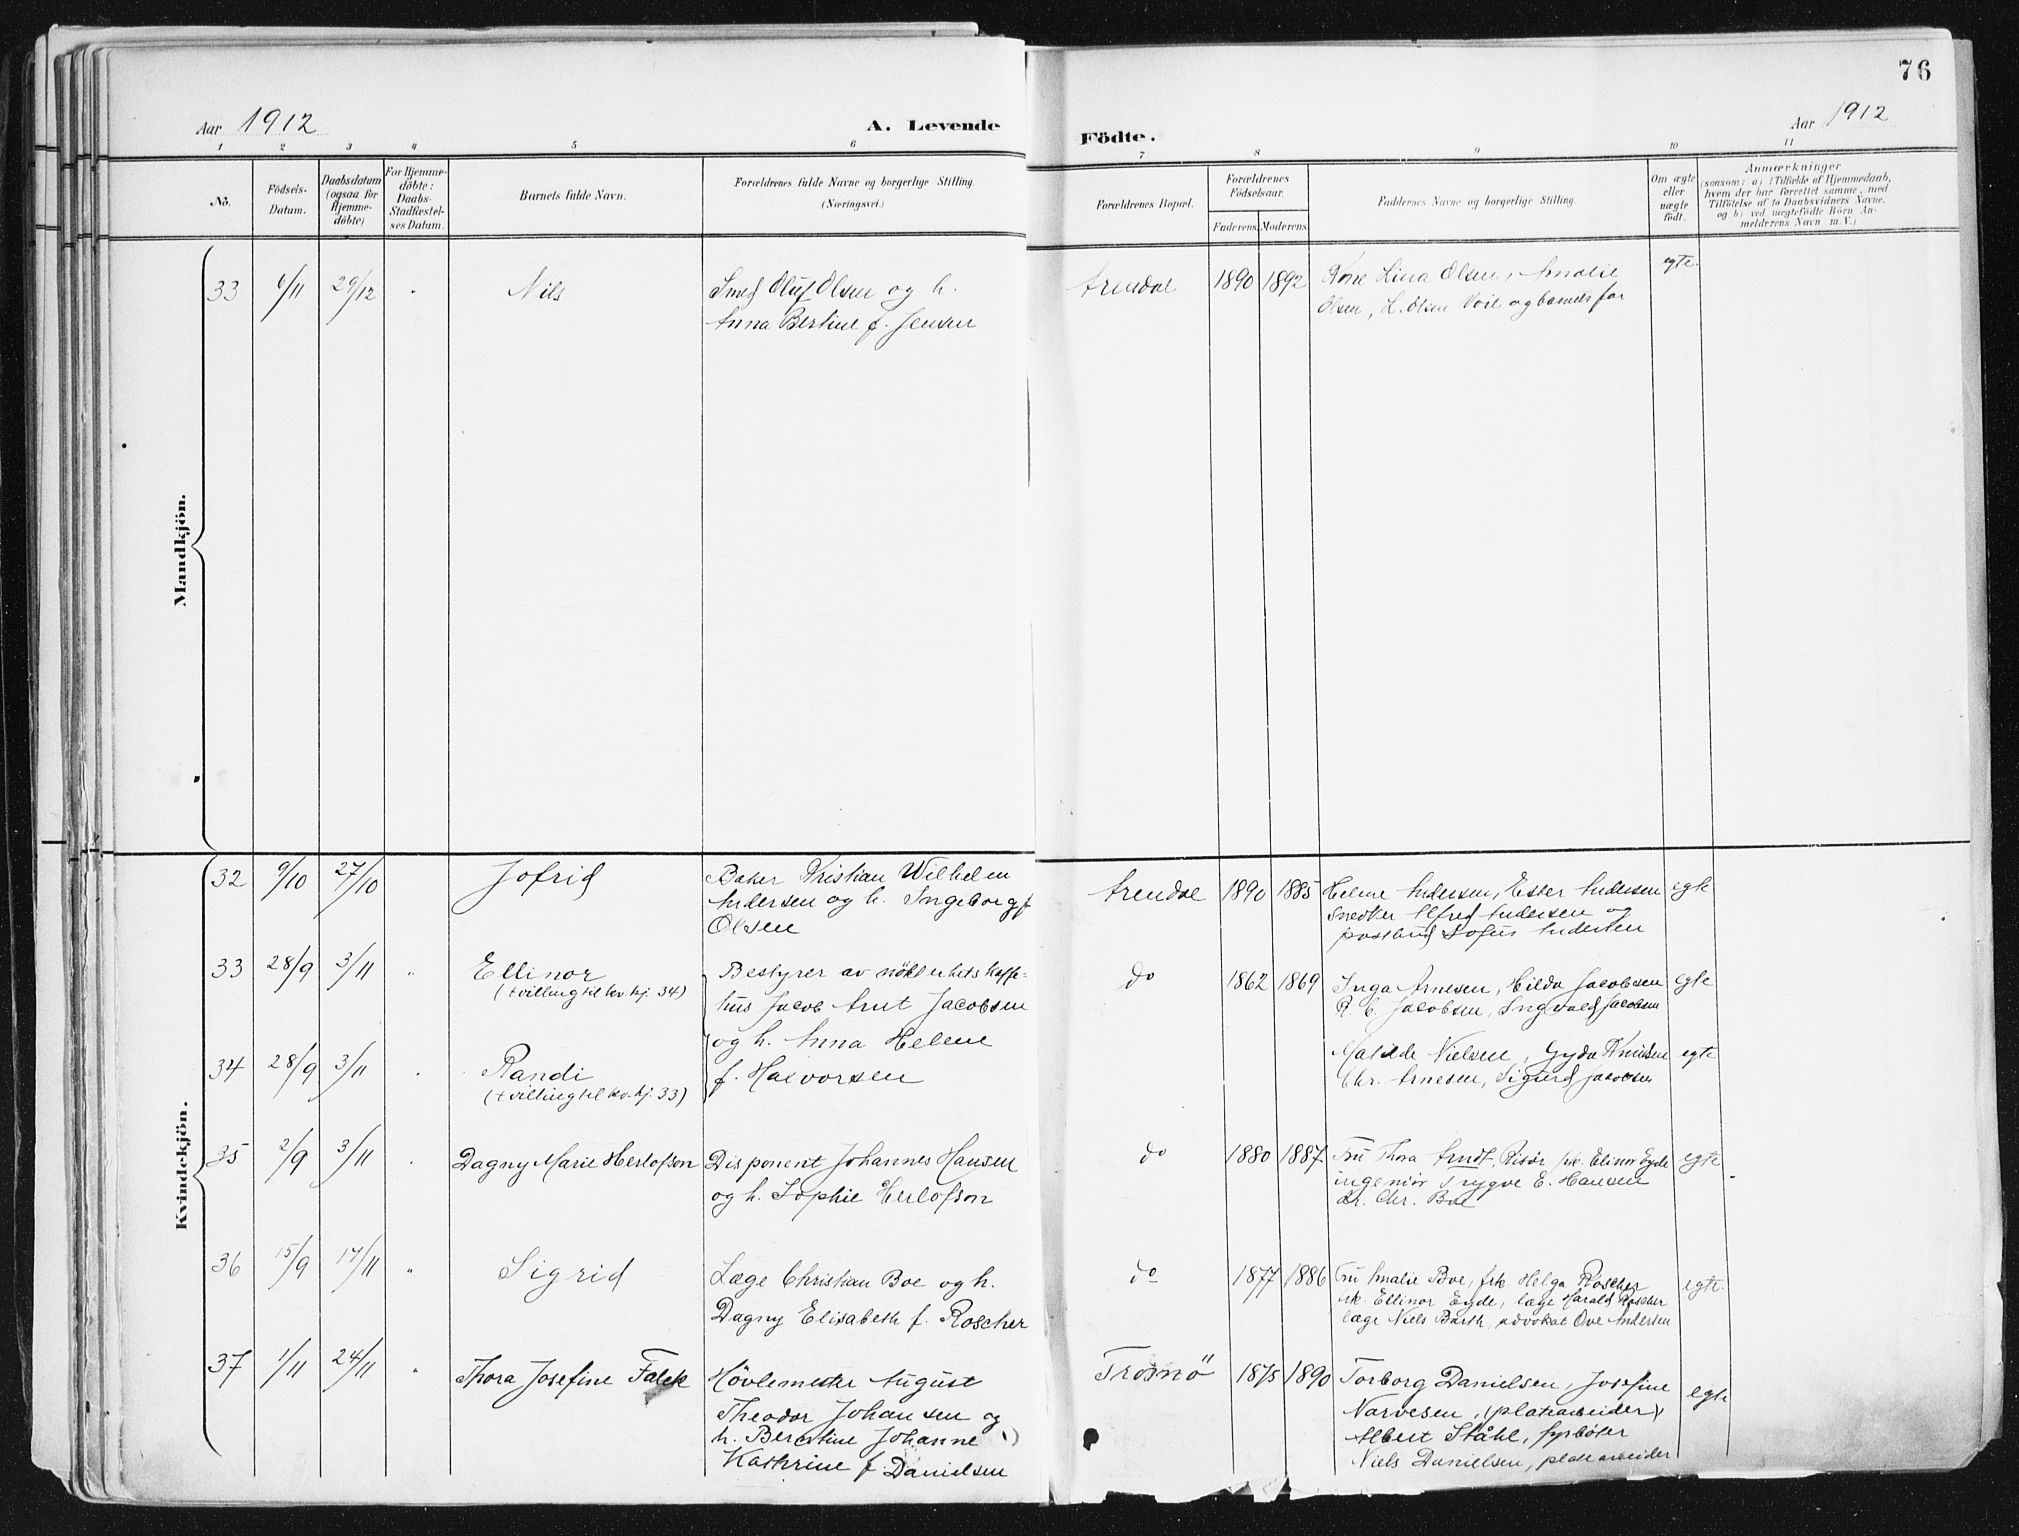 76
Aar 1912
A. Levende
Födte.
Aar 1912
1 2 3 4 5 6 7 8 9 10 11
No.
Födsels-
Datum.
Daabsdatum
(ogsaa for
Hjemme-
döbte)
For Hjemme-
döbte:
Daabs-
Stadfæstel-
ses Datum.
Barnets fulde Navn.
Forældrenes fulde Navne og borgerlige Stilling.
(Næringsvei.)
Forældrenes Bopæl.
Forældrenes
Födselsaar.
Faderens. Moderens.
Faddernes Navne og borgerlige Stilling.
Om ægte
eller
uægte
födt.
Anmærkninger
(saasom: a) i Tilfælde af Hjemmedaab,
hvem der har forrettet samme, med
Tilföielse af to Daabsvidners Navne,
og b) ved uægtefödte Börn An-
melderens Navn m. V.)
Mandkjön.
33 6/11 29/12 " Nils
Smed Oluf Olsen og h.
Anna Bertine f. Jensen
Arendal 1890 1892
Kone Lina Olsen, Amalie
Olsen, L. Olsen og barnets far
egte.
Kvindekjön.
32 9/10 27/10 Jofrid
Baker Kristian Wilhelm
Andersen og h. Ingeborg f.
Olsen
Arendal 1890 1885
Helene Andersen, Ester Andersen
Snedker Alfred Andersen og
postbud Sofus Andersen
egte
33 28/9 3/11 " Ellinor
(tvilling til kv. kj. 34)
Bestyrer av kaffe-
hus Jacob Arnt Jacobsen
og h. Anna Helene
f. Halvorsen
do 1862 1869
Inga Arnesen, Hilda Jacobsen
R. C. Jacobsen, Ingvald Jacobsen
egte
34 28/9 3/11 " Randi
(tvilling til kv. kj. 33)
Matilde Nielsen, Gyda Knudsen
Chr. Arnesen, Sigurd Jacobsen
egte
35 2/9 3/11 " Dagny Marie Herlofson
Disponent Johannes Hansen
og h. Sophie Herlofson
do 1880 1887
Fru Thora Arndt, Risör, frk. Elinor Eyde
ingeniør Trygve E. Hansen
dr. Chr. Boe
egte
36 15/9 17/11 " Sigrid
Læge Christian Boe og h.
Dagny Elisabeth f. Roscher
do 1877 1886
Fru Amalie Boe, frk. Helga Roscher
frk. Ellinor Eyde, læge Harald Roscher
læge Niels Barth, advokat Ove Andersen
egte.
37 1/11 24/11 " Thora Josefine Falck
Hövlemester August
Theodor Johansen og
h. Berntine Johanne
Kathrine f. Danielsen
Tromö 1875 1890
Torborg Danielsen, Josefine
Narvesen, (platearbeider)
Albert Ståhl, fyrböter
Niels Danielsen, platearbeider
egte